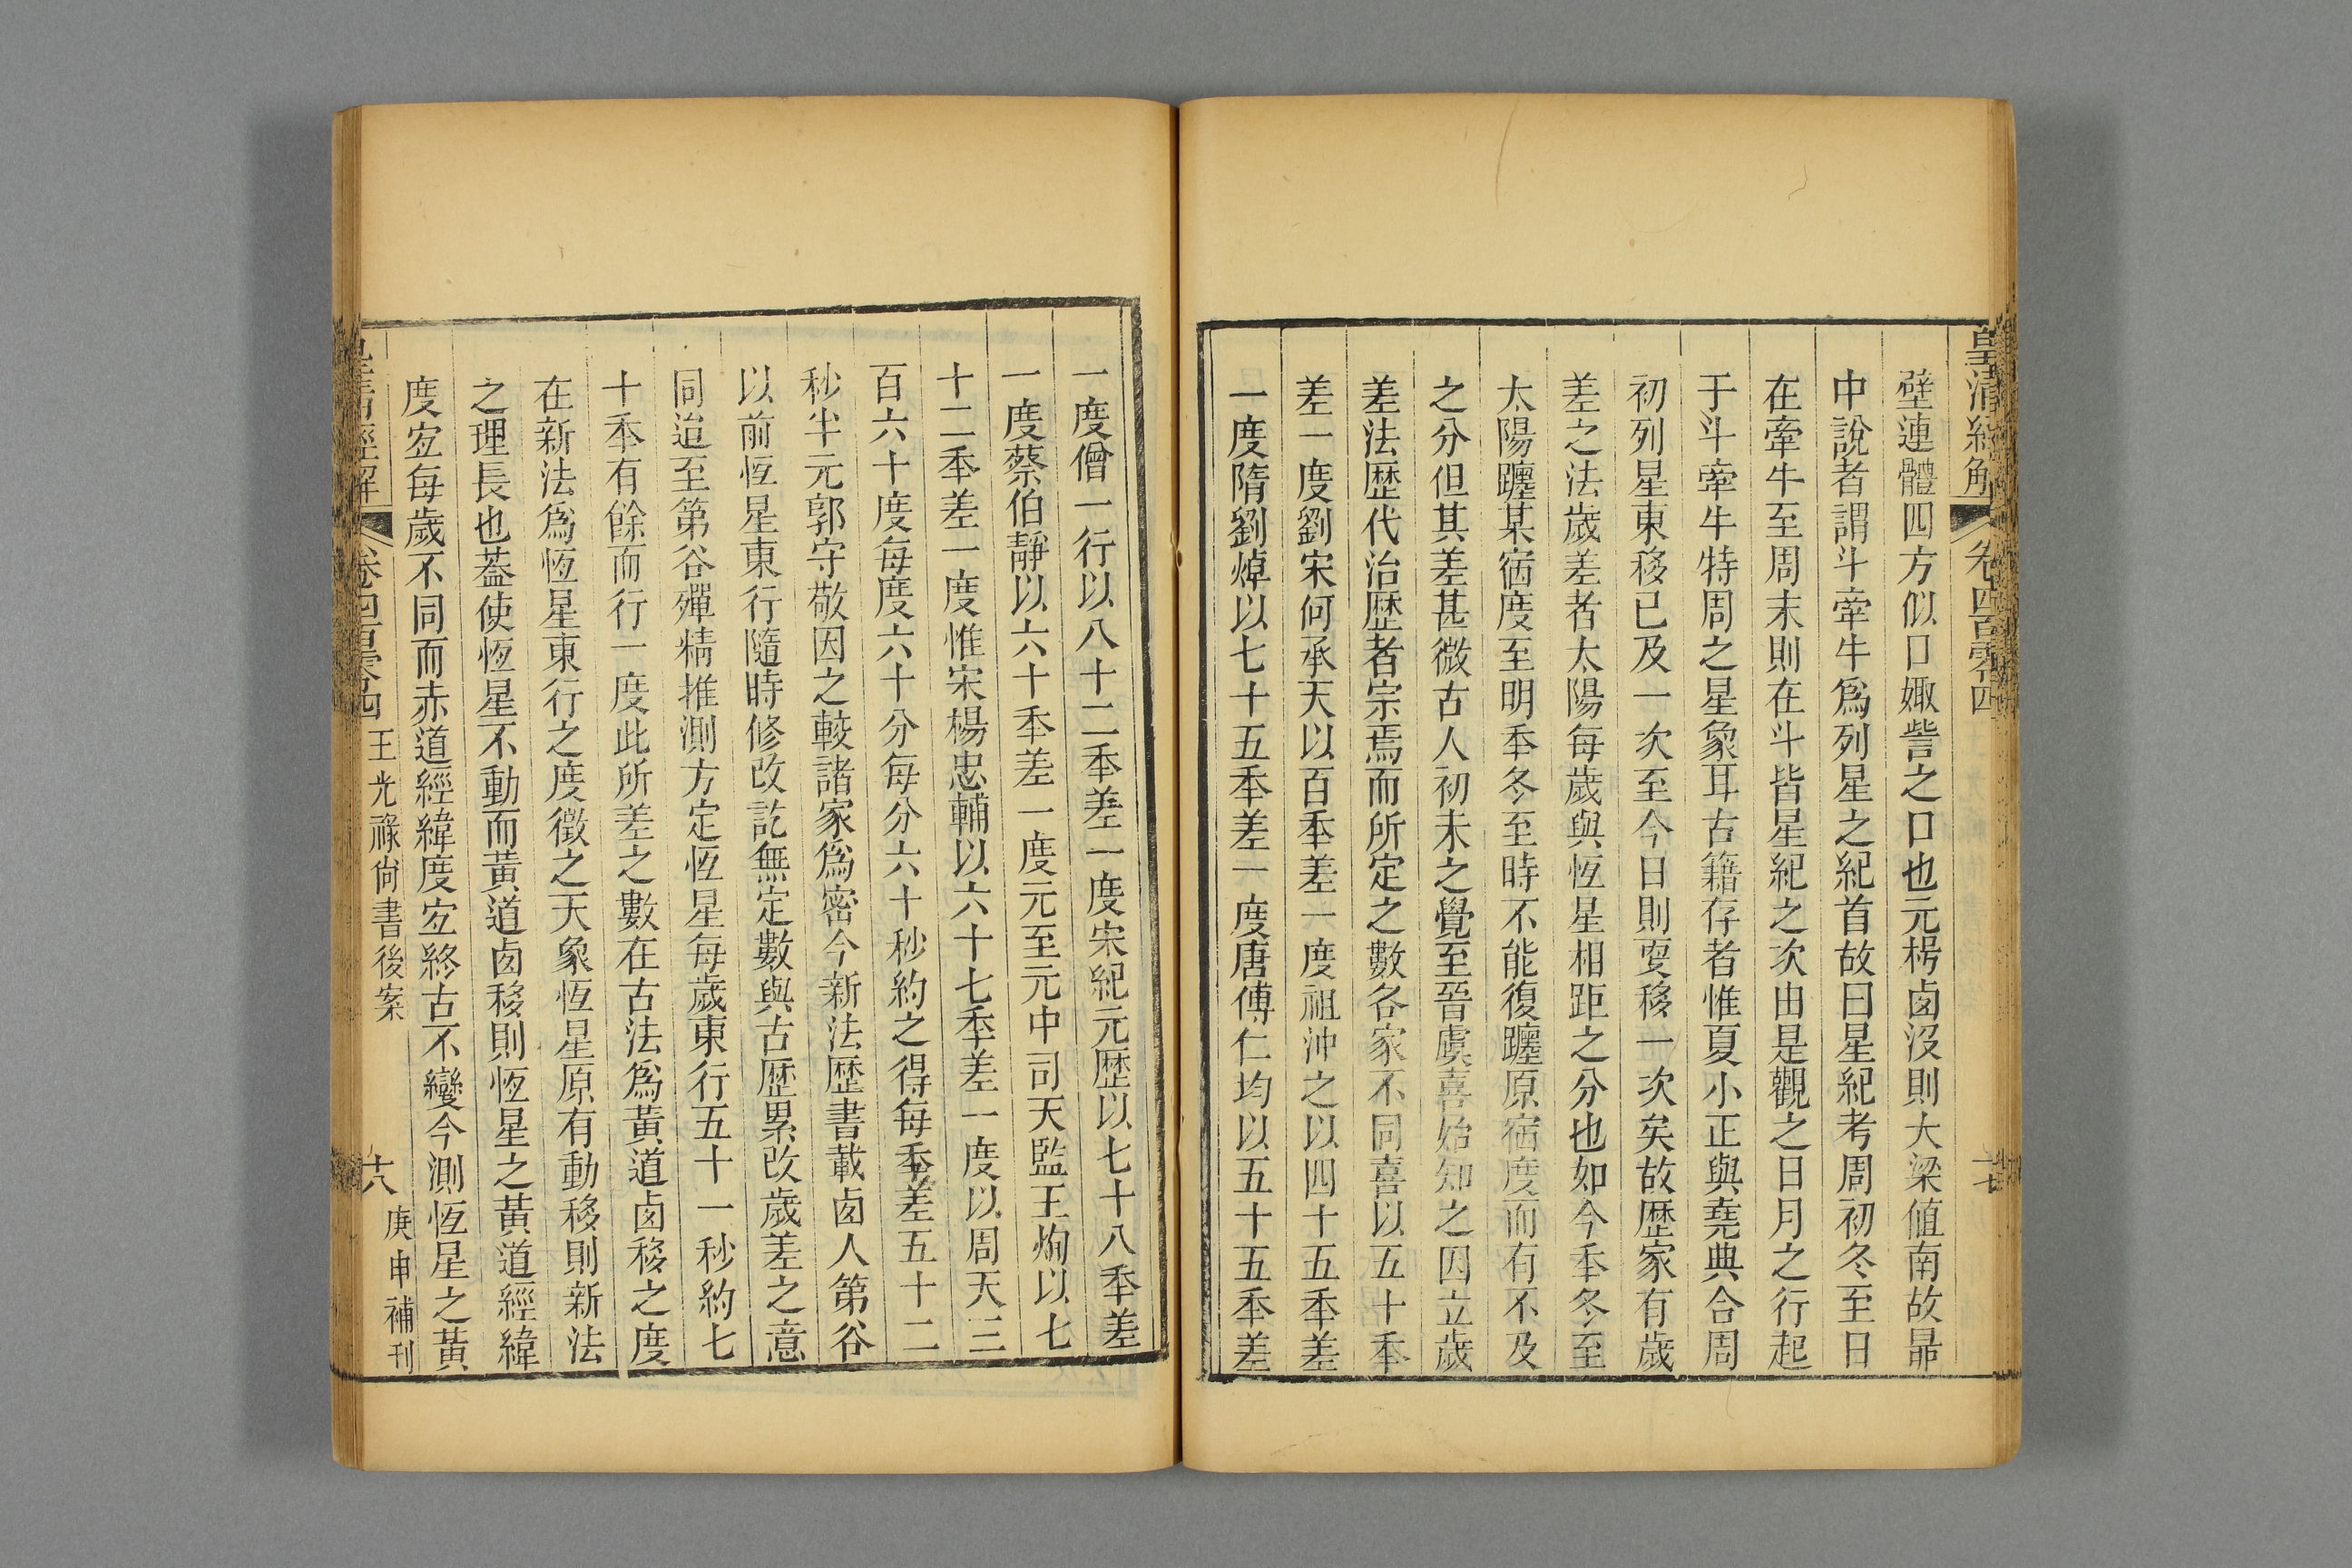 皇清經解 卷四百零四 十七
壁連體四方似口娵訾之口也元枵卤沒則大梁値南故昴
中說者謂斗牽牛爲列星之紀首故曰星紀考周初冬至日
在牽牛至周末則在斗皆星紀之次由是觀之日月之行起
于斗牽牛特周之星象耳古籍存者惟夏小正與堯典合周
初列星東移已及一次至今日則㪅移一次矣故歴家有歲
差之法歲差者太陽每歲與恆星相距之分也如今秊冬至
太陽躔某宿度至明秊冬至時不能復躔原宿度而有不及
之分但其差甚微古人初未之覺至晉虞喜始知之因立歲
差法歴代治歴者宗焉而所定之數各家不同喜以五十秊
差一度劉宋何承天以百秊差一度祖沖之以四十五秊差
一度隋劉焯以七十五秊差一度唐傅仁均以五十五秊差
一度僧一行以八十二秊差一度宋紀元歴以七十八秊差
一度蔡伯靜以六十秊差一度元至元中司天監王恂以七
十二秊差一度惟宋楊忠輔以六十七秊差一度以周天三
百六十度每度六十分每分六十秒約之得每秊差五十二
秒半元郭守敬因之較諸家爲密今新法歴書載卤人第谷
以前恆星東行隨時修改訖無定數與古歴累改歲差之意
同迨至第谷殫精推測方定恆星每歲東行五十一秒約七
十秊有餘而行一度此所差之數在古法爲黃道卤移之度
在新法爲恆星東行之度徵之天象恆星原有動移則新法
之理長也葢使恆星不動而黃道卤移則恆星之黃道經緯
度宐每歲不同而赤道經緯度宐終古不變今測恆星之黃
皇清經解 卷四百零四 王光祿尙書後案 十八 庚申補刊